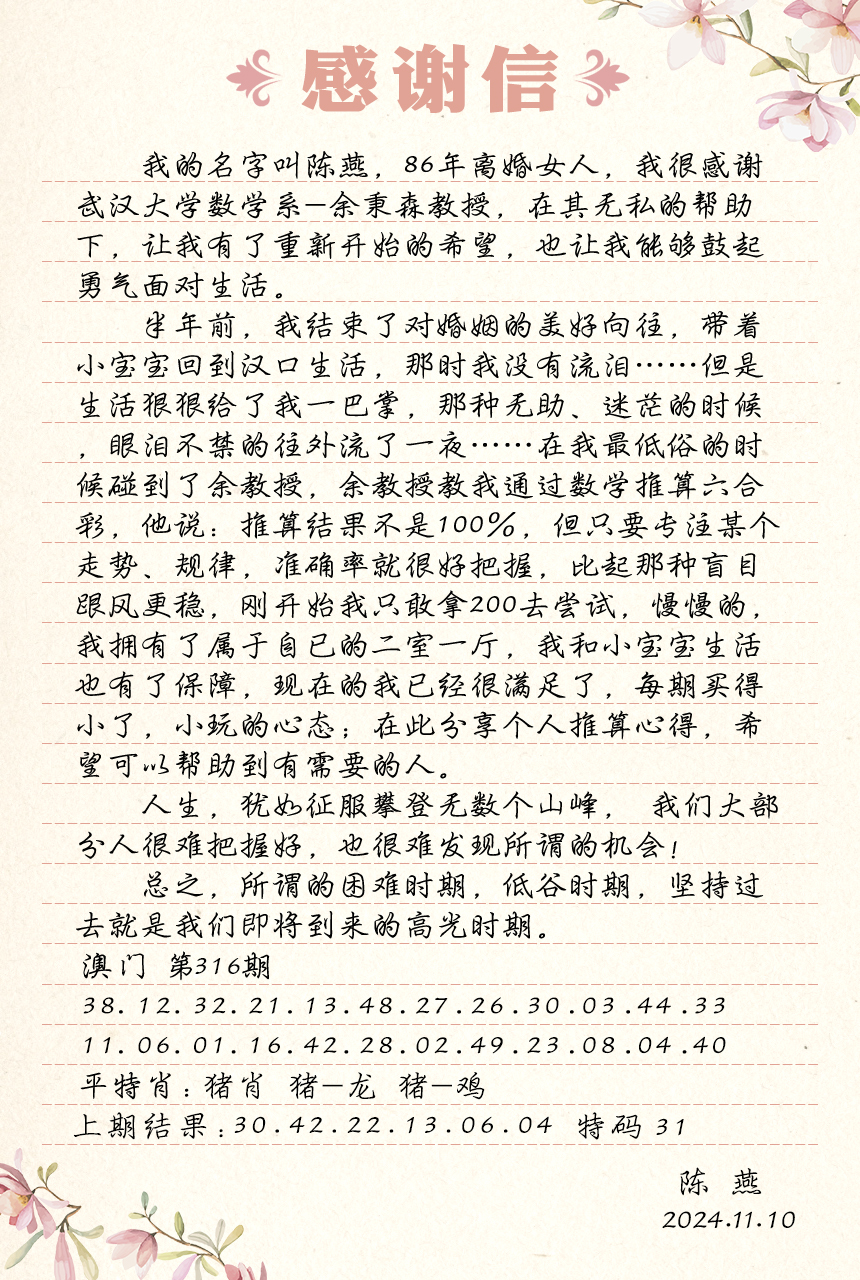 感谢信
我的名字叫陈燕，86年离婚女人，我很感谢
武汉大学数学系—余秉森教授，在其无私的帮助
下，让我有了重新开始的希望，也让我能够鼓起
勇气面对生活。
半年前，我结束了对婚姻的美好向往，带着
小宝宝回到汉口生活，那时我没有流泪……但是
生活狠狠给了我一巴掌，那种无助、迷茫的时候
，眼泪不禁的往外流了一夜……在我最低俗的时
候碰到了余教授，余教授教我通过数学推算六合
彩，他说：推算结果不是100%，但只要专注某个
走势、规律，准确率就很好把握，比起那种盲目
跟风更稳，刚开始我只敢拿200去尝试，慢慢的，
我拥有了属于自已的二室一厅，我和小宝宝生活
也有了保障，现在的我已经很满足了，每期买得
小了，小玩的心态；在此分享个人推算心得，希
望可以帮助到有需要的人。
人生，犹如征服攀登无数个山峰， 我们大部
分人很难把握好，也很难发现所谓的机会！
总之，所谓的困难时期，低谷时期，坚持过
去就是我们即将到来的高光时期。
澳门 第316期
38.12.32.21.13.48.27.26.30.03.44.33
11.06.01.16.42.28.02.49.23.08.04.40
平特肖：猪肖 猪—龙 猪—鸡
上期结果：30.42.22.13.06.04 特码 31
陈 燕
2024.11.10